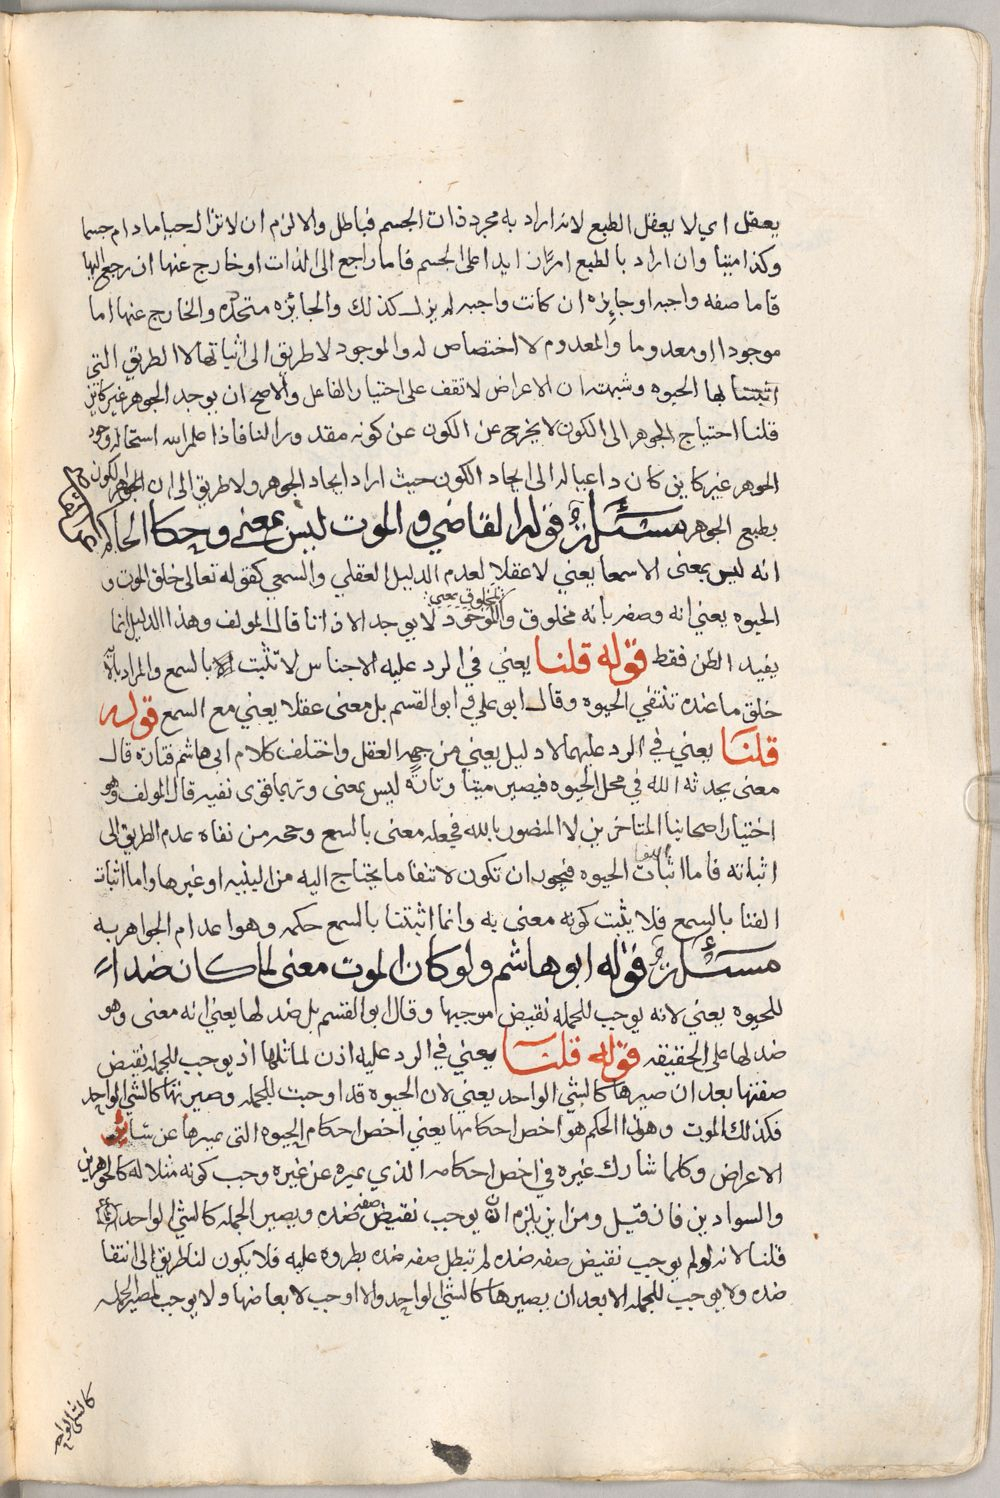 يعقل اي لا يعقل الطبع لانه اراد به مجرد ذات الجسم فباطل والا لزم ان لا تزال حيا ما دام جسما
وكذا ميتا وان اراد بالطبع امرا زايدا على الجسم فاما راجع الى الذات او خارج عنها ان رجع اليها
فاما صفه واجبه او جايزه ان كانت واجبه لم يزل كذلك والجايزه متجدده والخارج عنها اما
موجودا او معدوما والمعدوم لا اختصاص له والموجود لا طريق الى اثباتها الا الطريق التي
اثبتنا بها الحيوه وشبهته ان الاعراض لا تقف على اختيار الفاعل والا صح ان يوجد الجوهر غير كاين
قلنا احتياج الجوهر الى الكون لا يخرج عن الكون عن كونه مقدورا لنا فاذا علم الله استحاله وجود
الجوهر غير كاين كان داعيا له الى ايجاد الكون حيث اراد ايجاد الجوهر ولا طريق الى ان الكون
بطبع الجوهر مسئلة قوله القاضي والموت ليس بمعنى وحكا الحاكم
انه ليس بمعنى الا سمعا يعني لا عقلا لعدم الدليل العقلي والسمعي كقوله تعالى خلق الموت و
الحيوه يعني انه وصفه بانه مخلوق والموجود لا يوجد الا ذاتا قال المولف وهذا الدليل انما
يفيد الظن فقط قوله قلنا يعني في الرد عليه الاجناس لا تثبت بالسمع والمراد بانه
خلق ما عنده تنتفي الحيوه وقال ابو علي وابو القسم بل معنى عقلا يعني مع السمع قوله
قلنا يعني في الرد عليهما لا دليل يعني من جهه العقل واختلف كلام ابي هاشم فتارة قال
معنى يحدثه الله في محل الحيوه فيصير ميتا وتارة ليس بمعنى وربما قوى نفيه قال المولف وهو
اختيار اصحابنا المتاخرين الا المنصور بالله فجعله معنى بالسمع وحجه من نفاه عدم الطريق الى
اثباته فاما اثبات الحيوه فيجوز ان تكون لانتفا ما يحتاج اليه من البنيه او غيرها واما اثبات
الفنا بالسمع فلا يثبت كونه معنى به وانما اثبتنا بالسمع حكمه وهو اعدام الجواهر به
مسئلة قوله ابو هاشم ولو كان الموت معنى لما كان ضدا
للحيوه يعني لانه يوجب للجمله نقيض موجبها وقال ابو القسم بل ضد لها يعني انه معنى وهو
ضد لها على الحقيقه قوله قلنا يعني في الرد عليه اذن لماثلها اذ يوجب للجمله نقيض
صفتها بعد ان صيرها كالشي الواحد يعني لان الحيوه قد اوجبت للجمله وصيرتها كالشي الواحد
فكذلك الموت وهذا الحكم هو اخص احكامها يعني اخص احكام الحيوه التي تميزها عن سائر
الاعراض وكلما شارك غيره في اخص احكامه الذي يميزه عن غيره وجب كونه مثلا له كالجوهرين
والسوادين فان قيل ومن اين يلزم ان يوجب نقيض صفه ضده ويصير الجمله كالشي الواحد
قلنا لانه لو لم يوجب نقيض صفه ضده لم تبطل صفه ضده بطروه عليه فلا يكون لنا طريق الى انتفا
ضده ولا يوجب للجمله الا بعد ان يصيرها كالشي الواحد والا اوجب لابعاضها ولا يوجب لمصير الجمله
كالشي الواحد